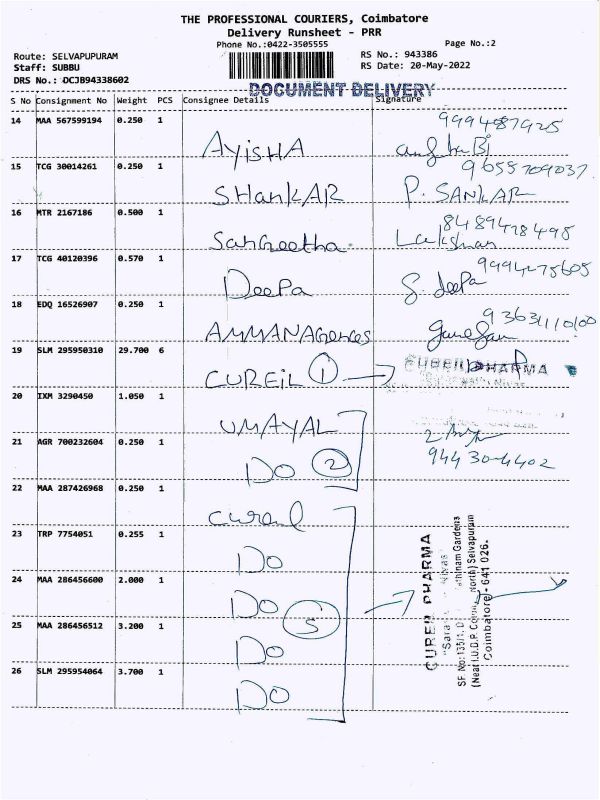 THE PROFESSIONAL COURIERS, Coimbatore
Delivery Runsheet - PRR
Phone No.:0422-3505555
Page No.:2
Route: SELVAPUPURAM
Staff: SUBBU
DRS No.: DCJB94338602
RS No.: 943386
RS Date: 20-May-2022
DOCUMENT DELIVERY
S No Consignment No Weight PCS Consignee Details Signature
14 MAA 567599194 0.250 1
AYISHA
15 TCG 30014261 0.250 1
SHANKAR P. SANKAR
16 MTR 2167186 0.500 1
Sangeetha Lakshman
17 TCG 40120396 0.570 1
DeePa S. deepa
18 EDQ 16526907 0.250 1
AMMAN Agences
19 SLM 295950310 29.700 6
CUREIL 1 CUREU PHARMA
20 IXM 3290450 1.050 1
UMAYAL
21 AGR 700232604 0.250 1
DO 2
22 MAA 287426968 0.250 1
23 TRP 7754051 0.255 1
DO
24 MAA 286456600 2.000 1
DO 5
25 MAA 286456512 3.200 1
DO
26 SLM 295954064 3.700 1
DO
CUREU PHARMA
SF.No:135/1,
Coimbatore - 641 026.